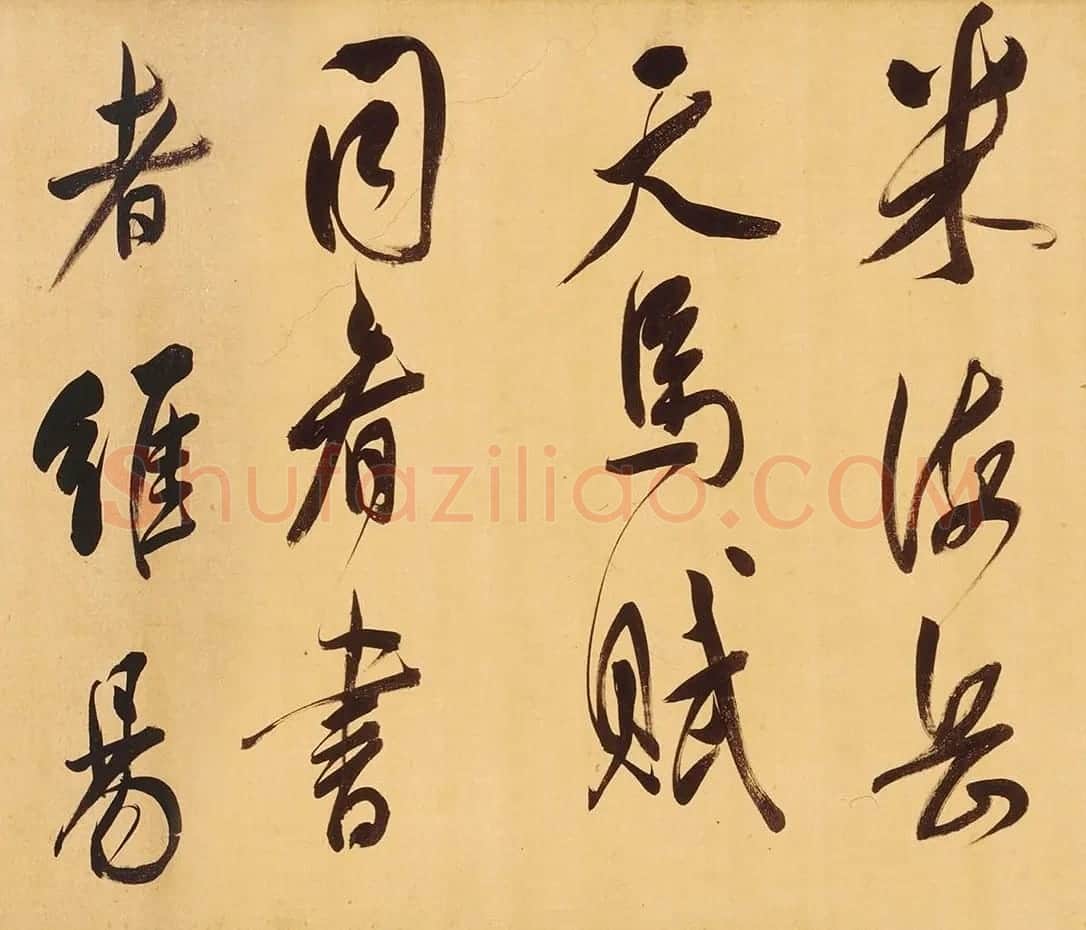 米海岳
天馬賦
書
者維
Shufaziliao.COM